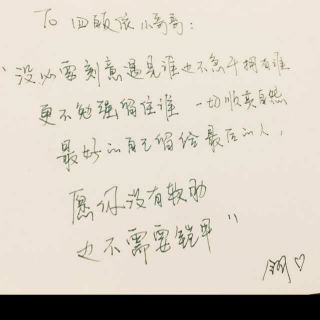 To 四顾依小哥哥：
“没必要刻意遇见谁也不急于拥有谁
更不勉强留住谁 一切顺其自然
最好的自己留给最后的人，
愿你没有软肋
也不需要铠甲”